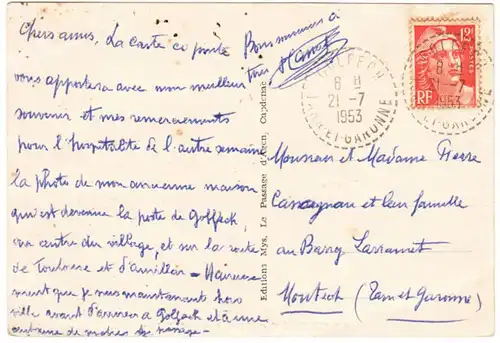 Chers amis, La carte ci jointe
vous apportera avec mon meilleur
souvenir et mes remerciements
pour l'hospitalité de l'autre semaine
la photo de mon ancienne maison
qui est devenue la poste de Golfech
au centre du village, et sur la route
de Toulouse et d'Aurillac - Heureuse-
ment que je suis maintenant hors
ville avant d'arriver à Golfech et à une
de mètres de passage -
Bons souvenirs à
tous
GOLFECH
8 H
21 - 7
1953
TARN-ET-GARONNE
12F
RF
8 H
- 7
1953
ET-GARONNE
Editions Mys, Le Passage d'Agen,
Monsieur et Madame Pierre
et leur famille
au Barry
Montech (Tarn et Garonne)